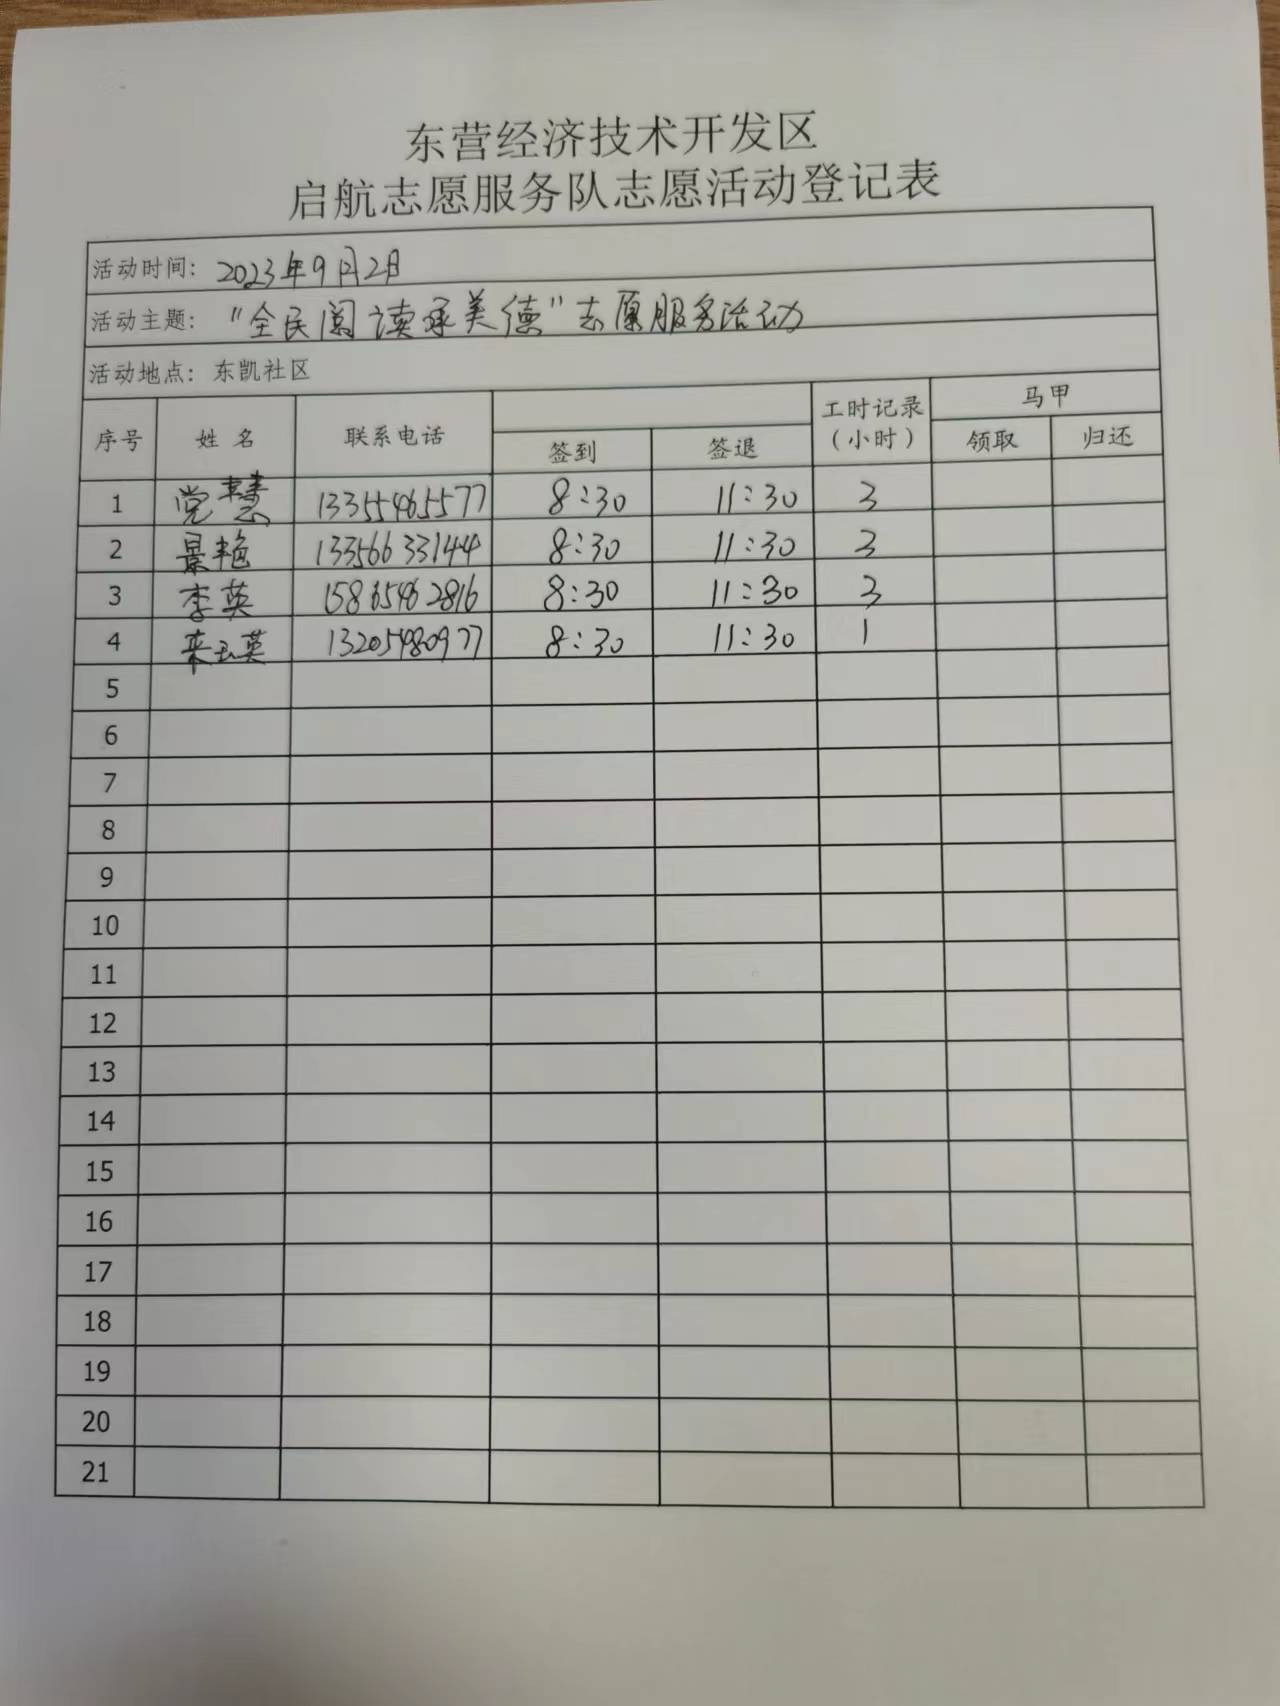 东营经济技术开发区
启航志愿服务队志愿活动登记表
活动时间: 2023年9月2日
活动主题: "全民阅读承美德"志愿服务活动
活动地点: 东凯社区
序号 姓名 联系电话 签到 签退 工时记录(小时) 马甲 领取 归还
1 党慧 13355465577 8:30 11:30 3
2 景艳 13356633144 8:30 11:30 3
3 李英 15865462816 8:30 11:30 3
4 来玉英 13205480977 8:30 11:30 1
5
6
7
8
9
10
11
12
13
14
15
16
17
18
19
20
21